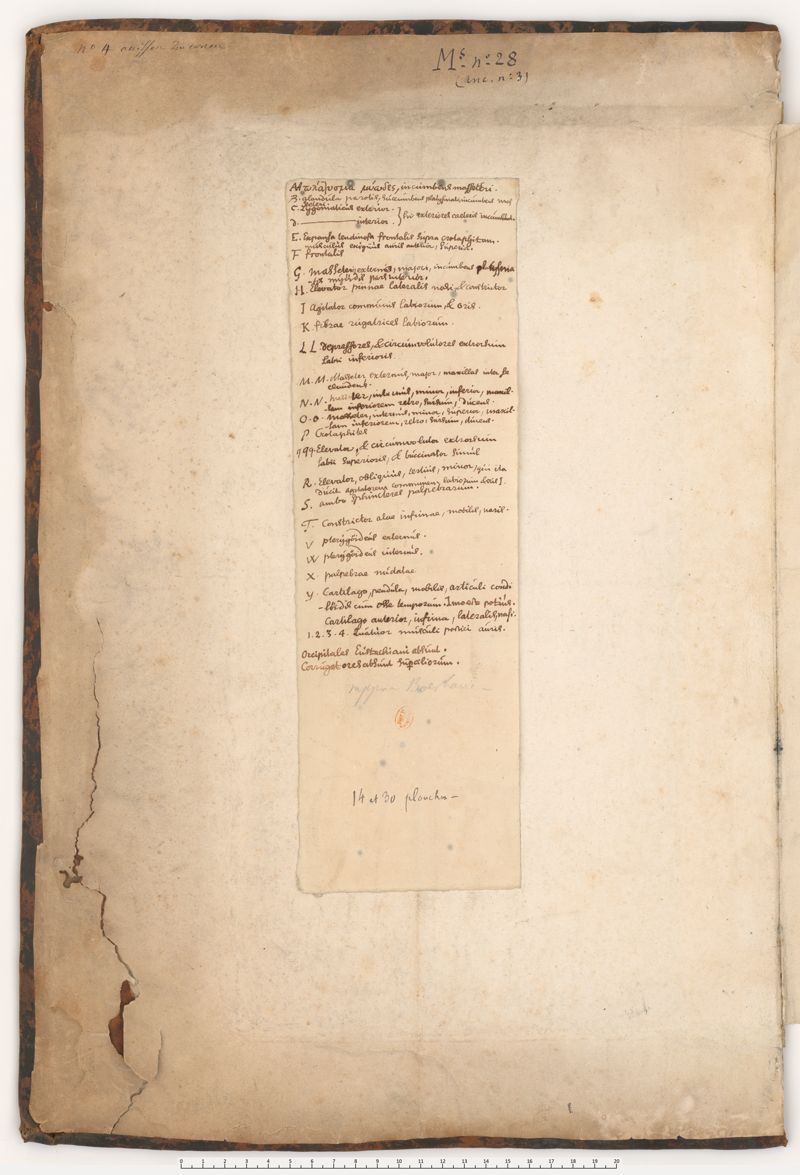 nº 4
Ms. nº 28
(anc. nº 3)
μυώδες, incumbens masseteri.
B. glandula parotis,
C. Zygomaticus exterior.
D. ——— interior.
E. Expansa tendinosa frontalis supra crotaphitum.
musculus exiguus auris
F frontalis
G. Masseter externus, major, incumbens
H. Elevator pinnae lateralis nasi, & constrictor
I Agitator communis labiorum, & oris.
K fibrae rugatrices labiorum.
LL. depressores, & circumvolutores extrorsum
labii inferioris.
M.M. Masseter externus, major, maxillas
N.N. internus, minor, inferior, maxil-
lam inferiorem retro, sursum, ducens.
O.O. Masseter, internus, minor, superior, maxil-
lam inferiorem, retro, sursum, ducens.
P Crotaphites
qqq. Elevator, & circumvolutor extrorsum
labii superioris, & buccinator simul
R. Elevator, obliquus, minor, qui ita
ducit agitatorem communem labiorum & oris I.
S. ambo sphincteres palpebrarum.
T. Constrictor alae infimae, mobilis, nasi.
V pterygoideus externus.
W pterygoideus internus.
X palpebrae nudatae
y. Cartilago, pendula, mobilis, articuli condi-
loïdis cum osse temporum. Imo est potius.
Cartilago anterior, infima, lateralis, nasi.
1. 2. 3. 4. Quatuor musculi postici auris.
Occipitales Eustachiani absunt.
Corrugatores absunt superciliorum.
14 et 30 planches —
0 1 2 3 4 5 6 7 8 9 10 11 12 13 14 15 16 17 18 19 20